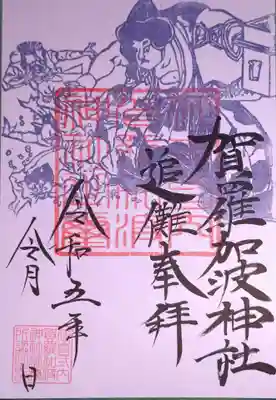 賀羅加波神社
追儺奉拝
令和五年
令月 日